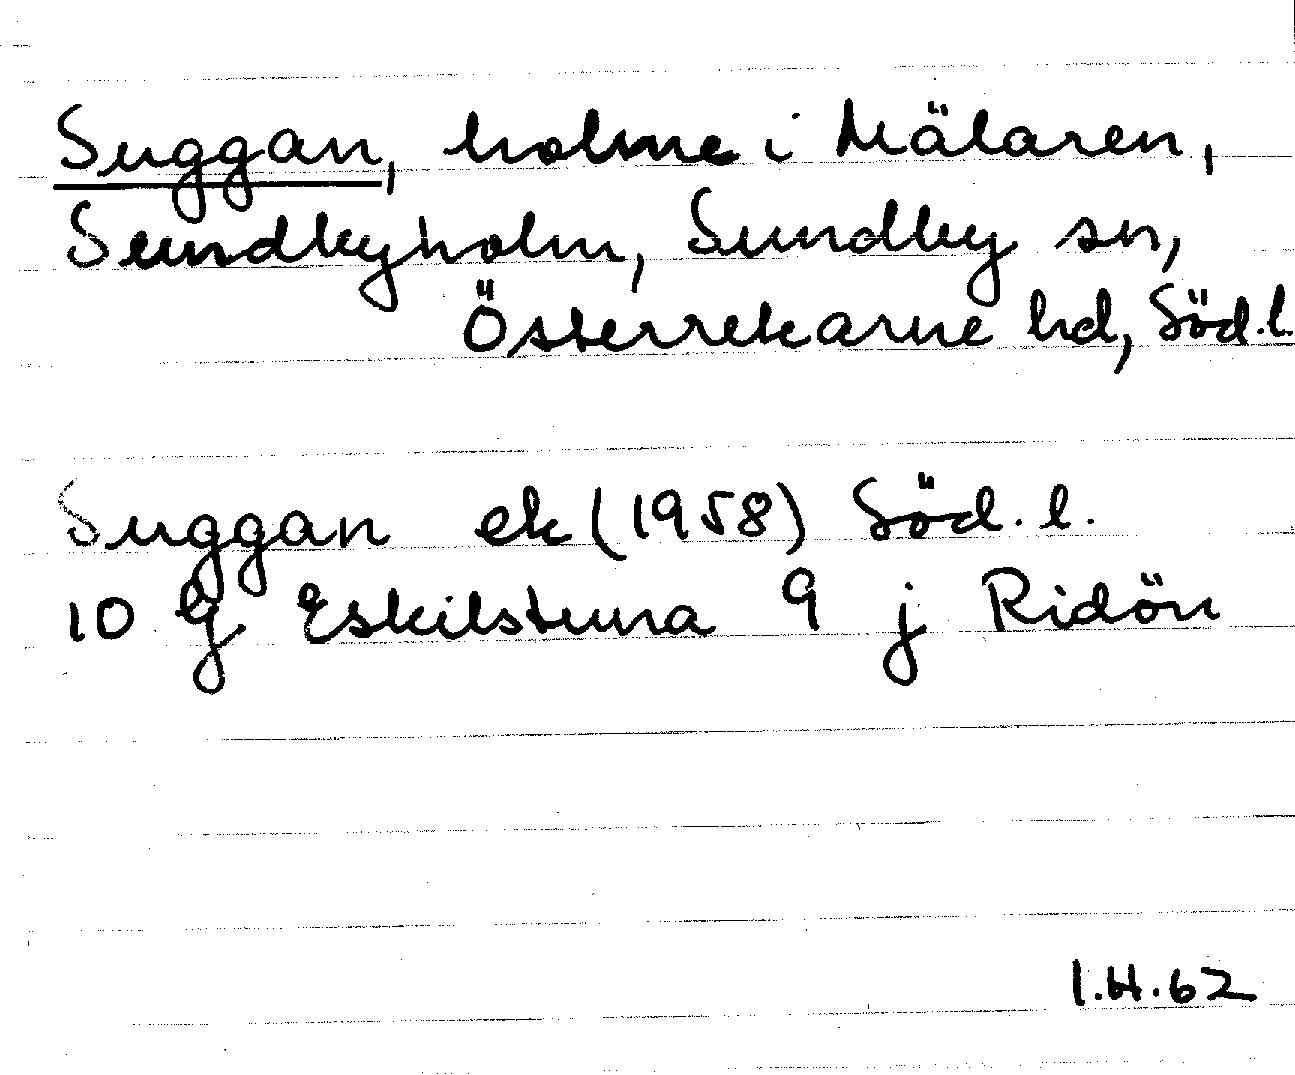 Suggan, holme i Mälaren,
Sundbyholm, Sundby sn,
Österrekarne hd, Söd.l.
Suggan ek (1958) Söd.l.
10 G Eskilstuna 9 j Ridön
I.H.62